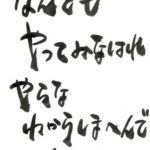 なんでも
やってみなはれ
やらな
わからしまへんで